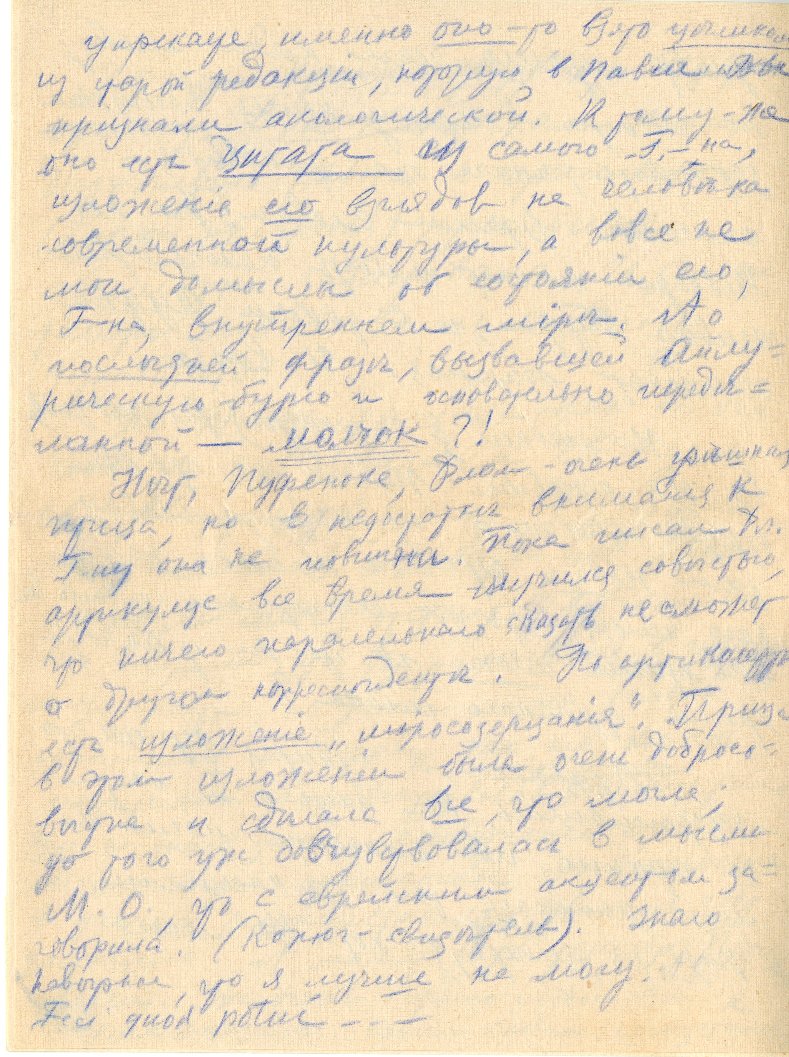 упрекаете, именно оно-то взято цѣликом
из старой редакціи, которую в Павил
признали апологической. К тому-же
оно есть цитата из самого Г.-на,
изложеніе его взглядов на человѣка
современной культуры, а вовсе не
мои домыслы об состояніи его,
Г-на, внутреннем мірѣ. А о
послѣдней фразѣ, вызвавшей Айлу=
рическую бурю и основательно передѣ=
ланной — молчок?!
Нѣт, Пуфеноке, Длом - очень
птица, но в недостаткѣ вниманія к
Г-ну она не повинна. Пока писал Дл.
артикулус все время мучился совѣстью,
что ничего паралельнаго сказать не сможет
о другом корреспондентѣ.
есть изложеніе „міросозерцанія". Птица
в этом изложеніи была очень добросо=
вѣстна и сдѣлала все, что могла;
до того уж довчувствовалась в мысли
М. О., что с еврейским акцентом за=
говорила. (Котюг - свидѣтель). Знаю
навѣрное, что я лучше не могу.
Feci quod potui - - -